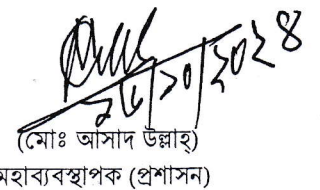 /১০/২০২৪
(মোঃ আসাদ উল্লাহ্)
মহাব্যবস্থাপক (প্রশাসন)